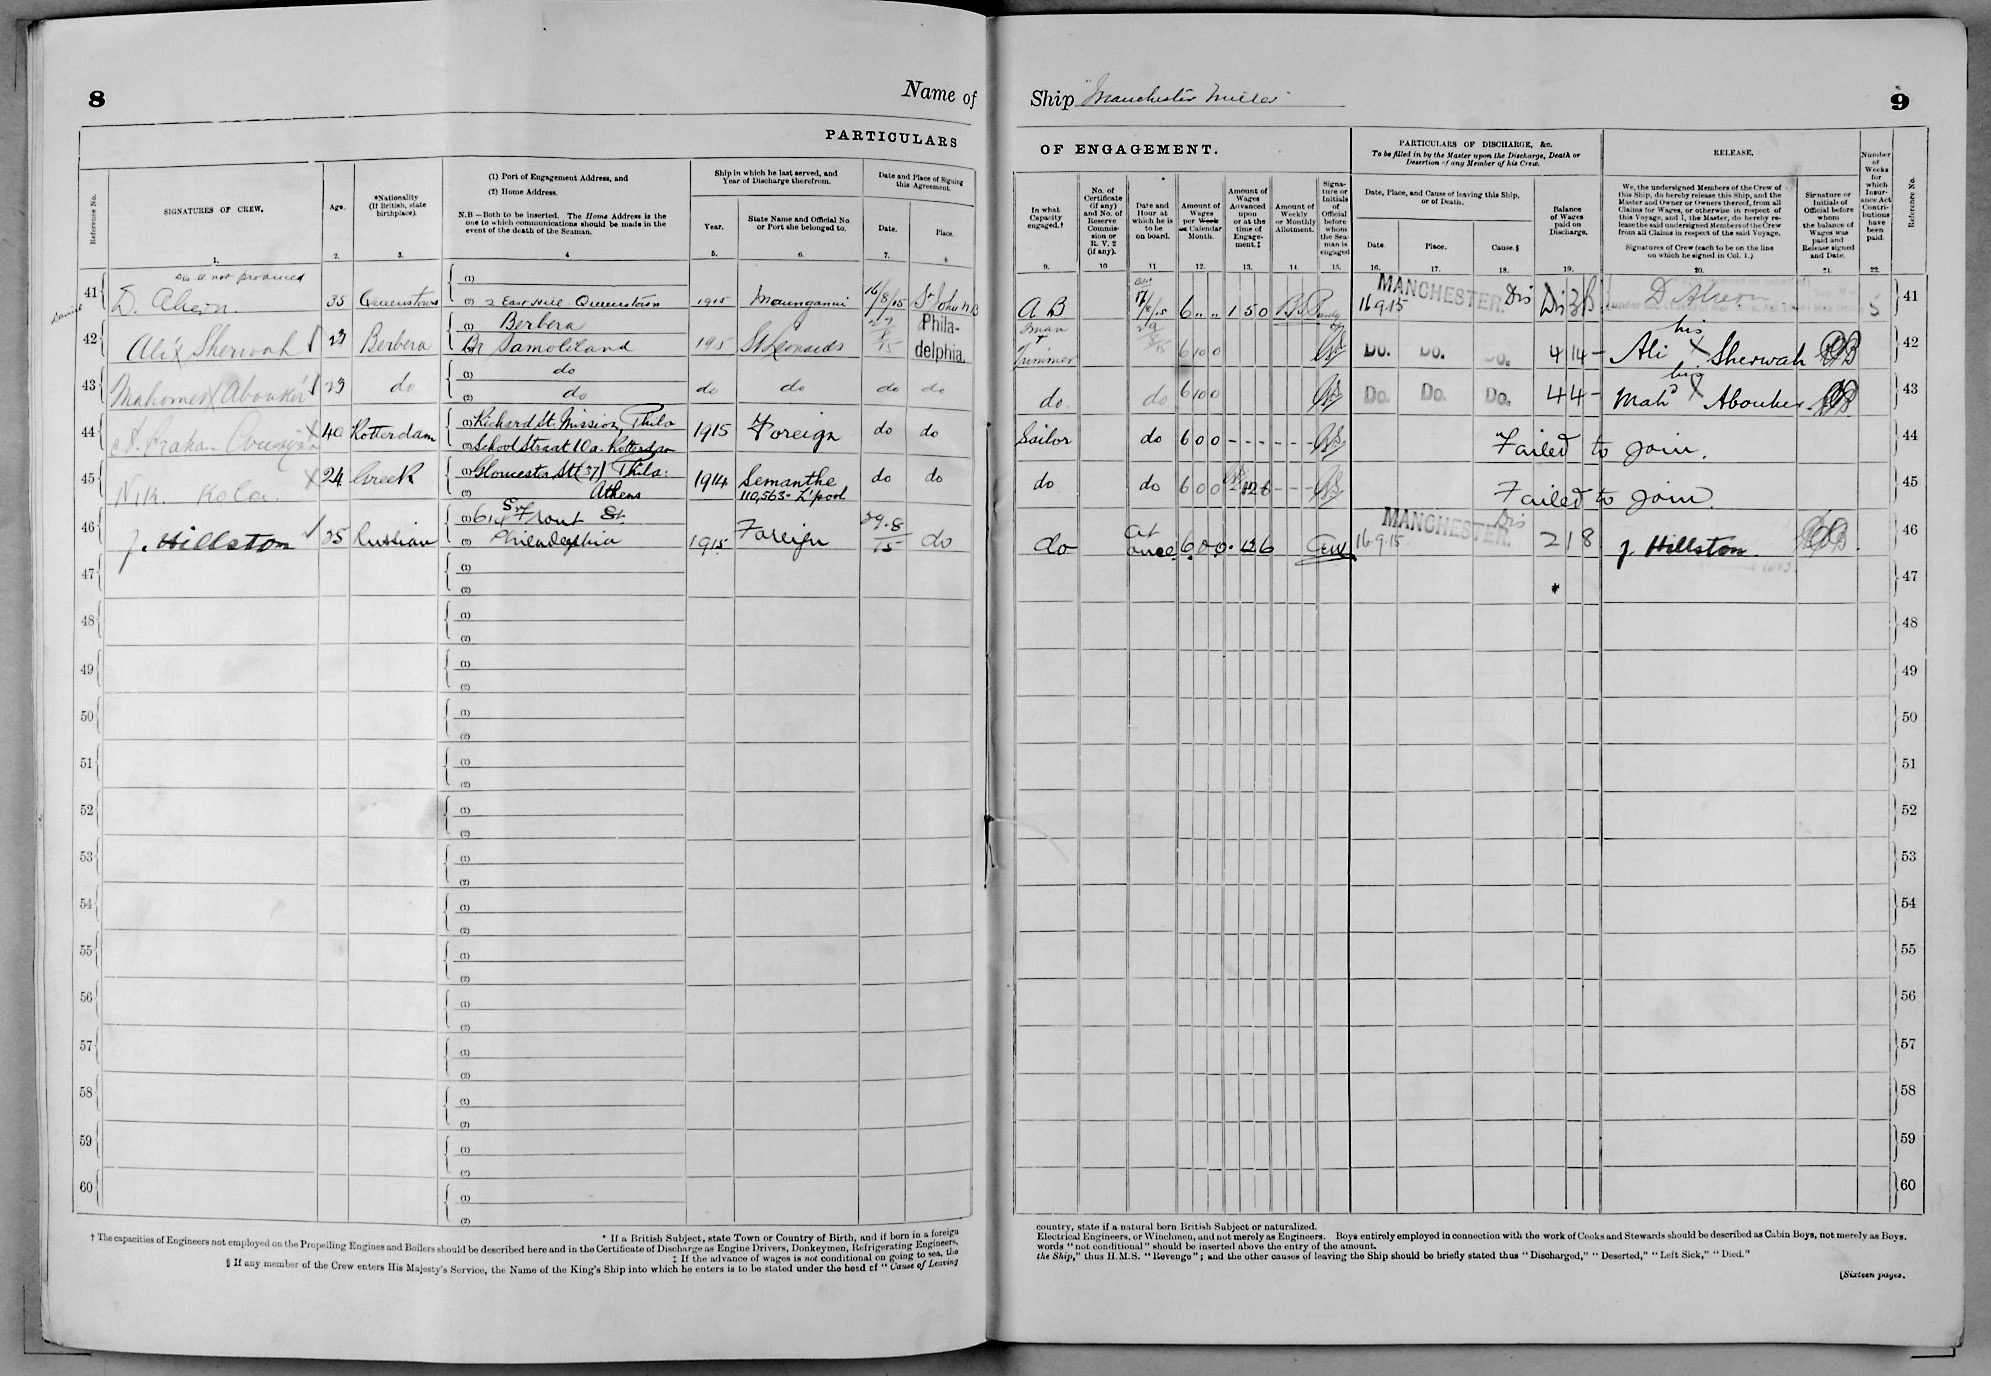 8
Name of
PARTICULARS
Reference No.
SIGNATURES OF CREW.
Age.
*Nationality
(If British, state
birthplace).
(1) Port of Engagement Address, and
(2) Home Address.
N.B —Both to be inserted. The Home Address is the
one to which communications should be made in the
event of the death of the Seaman.
Ship in which he last served, and
Year of Discharge therefrom.
Year.
State Name and Official No.
or Port she belonged to.
Date and Place of Signing
this Agreement.
Date.
Place.
1. 2. 3. 4 5. 6. 7. 8
not produced
41 35 Queenstown (1)
(2) 2 East Hill Queenstown 1915 Maunganui 16/8/15 St John NB
42 Ali X Sherwah 23 Berbera (1) Berbera
Br Samoliland 1915 St Leonards Phila-
delphia.
43 Mahomed X Abouker 23 do (1) do
(2) do do do do do
44 40 Rotterdam (1) Richard St. Mission, Phila
(2) School Straat 10a. Rotterdam 1915 Foreign do do
45 Nik. Kola. X 24 Greek (1) Gloucester St (37) Phila:
(2) Athens 1914 Semanthe
110,563- L'pool do do
46 J. Hillston 25 Russian (1) 614 S. Front St.
(2) Philadelphia 1915 Foreign 29.8/15 do
47 (1)
(2)
48 (1)
(2)
49 (1)
(2)
50 (1)
(2)
51 (1)
(2)
52 (1)
(2)
53 (1)
(2)
54 (1)
(2)
55 (1)
(2)
56 (1)
(2)
57 (1)
(2)
58 (1)
(2)
59 (1)
(2)
60 (1)
(2)
* If a British Subject, state Town or Country of Birth, and if born in a foreign
† The capacities of Engineers not employed on the Propelling Engines and Boilers should be described here and in the Certificate of Discharge as Engine Drivers, Donkeymen, Refrigerating Engineers,
‡ If the advance of wages is not conditional on going to sea, the
§ If any member of the Crew enters His Majesty's Service, the Name of the King's Ship into which he enters is to be stated under the head of "Cause of Leaving
Ship "Manchester Miller"
9
OF ENGAGEMENT.
PARTICULARS OF DISCHARGE, &c.
To be filled in by the Master upon the Discharge, Death or
Desertion of any Member of his Crew.
RELEASE.
Number
of
Weeks
for
which
Insur-
ance Act
Contri-
butions
have
been
paid.
Reference No.
In what
Capacity
engaged.†
No. of
Certificate
(if any)
and No. of
Reserve
Commis-
sion or
R. V. 2
(if any).
Date and
Hour at
which he is
to be
on board.
Amount of
Wages
per Week
or Calendar
Month.
Amount of
Wages
Advanced
upon
or at the
time of
Engage-
ment.‡
Amount of
Weekly
or Monthly
Allotment.
Signa-
ture or
Initials
of
Official
before
whom
the Sea-
man is
engaged
Date, Place, and Cause of leaving this Ship,
or of Death.
Date.
Place.
Cause.§
Balance
of Wages
paid on
Discharge.
We, the undersigned Members of the Crew of
this Ship, do hereby release this Ship, and the
Master and Owner or Owners thereof, from all
Claims for Wages, or otherwise in respect of
this Voyage, and I, the Master, do hereby re-
lease the said undersigned Members of the Crew
from all Claims in respect of the said Voyage.
Signatures of Crew (each to be on the line
on which he signed in Col. 1.)
Signature or
Initials of
Official before
whom
the balance of
Wages was
paid and
Release signed
and Date.
9. 10 11 12. 13. 14. 15. 16. 17. 18. 19. 20. 21. 22.
A B 6 " " 1 5 0 16.9.15 MANCHESTER. Dis 5 41
Trimmer 6 10 0 Do. Do. Do. 4 14 - Ali his X Sherwah 42
do. do 6 10 0 Do. Do. Do. 4 4 - Mahd his X Abouker 43
Sailor do 6 0 0 - - - - - - Failed to join. 44
do do 6 0 0 - - - Failed to join. 45
do at
once 6 0 0 . 12 6 16.9.15. MANCHESTER. Dis 2 1 8 J. Hillston. 46
47
48
49
50
51
52
53
54
55
56
57
58
59
60
country, state if a natural born British Subject or naturalized.
Electrical Engineers, or Winchmen, and not merely as Engineers. Boys entirely employed in connection with the work of Cooks and Stewards should be described as Cabin Boys, not merely as Boys.
words "not conditional" should be inserted above the entry of the amount.
the Ship," thus H.M.S. "Revenge"; and the other causes of leaving the Ship should be briefly stated thus "Discharged," "Deserted," "Left Sick," "Died."
[Sixteen pages.